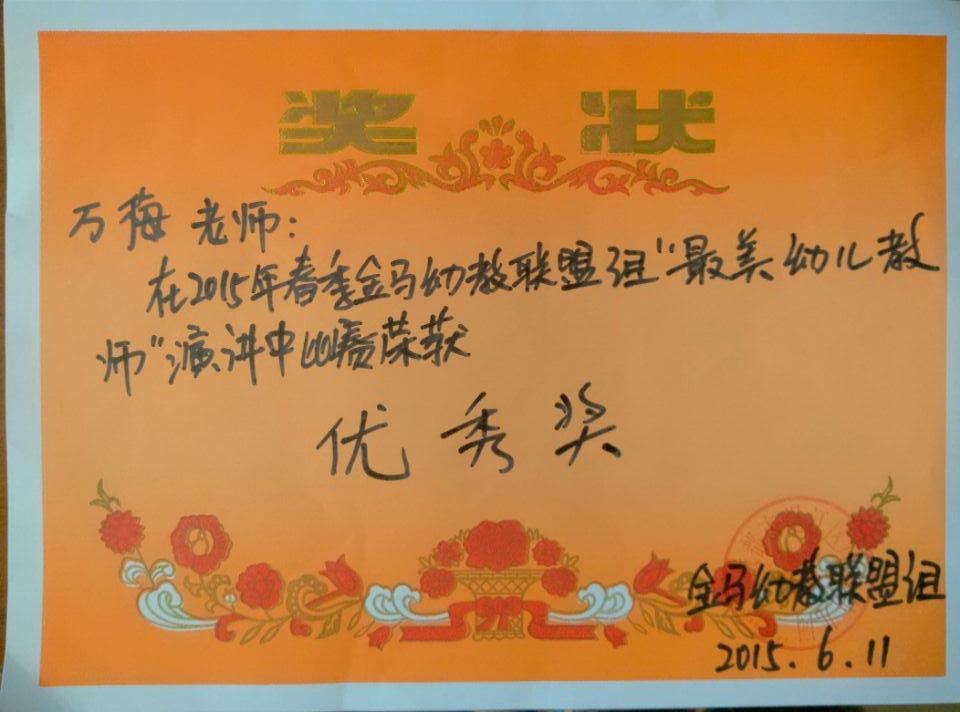 奖状
万梅老师：
在2015年春季金马幼教联盟组"最美幼儿教
师"演讲中比赛荣获
优秀奖
金马幼教联盟组
2015.6.11